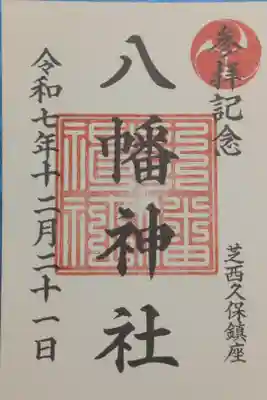 参拝記念
芝西久保鎮座
八幡神社
令和七年十二月二十一日